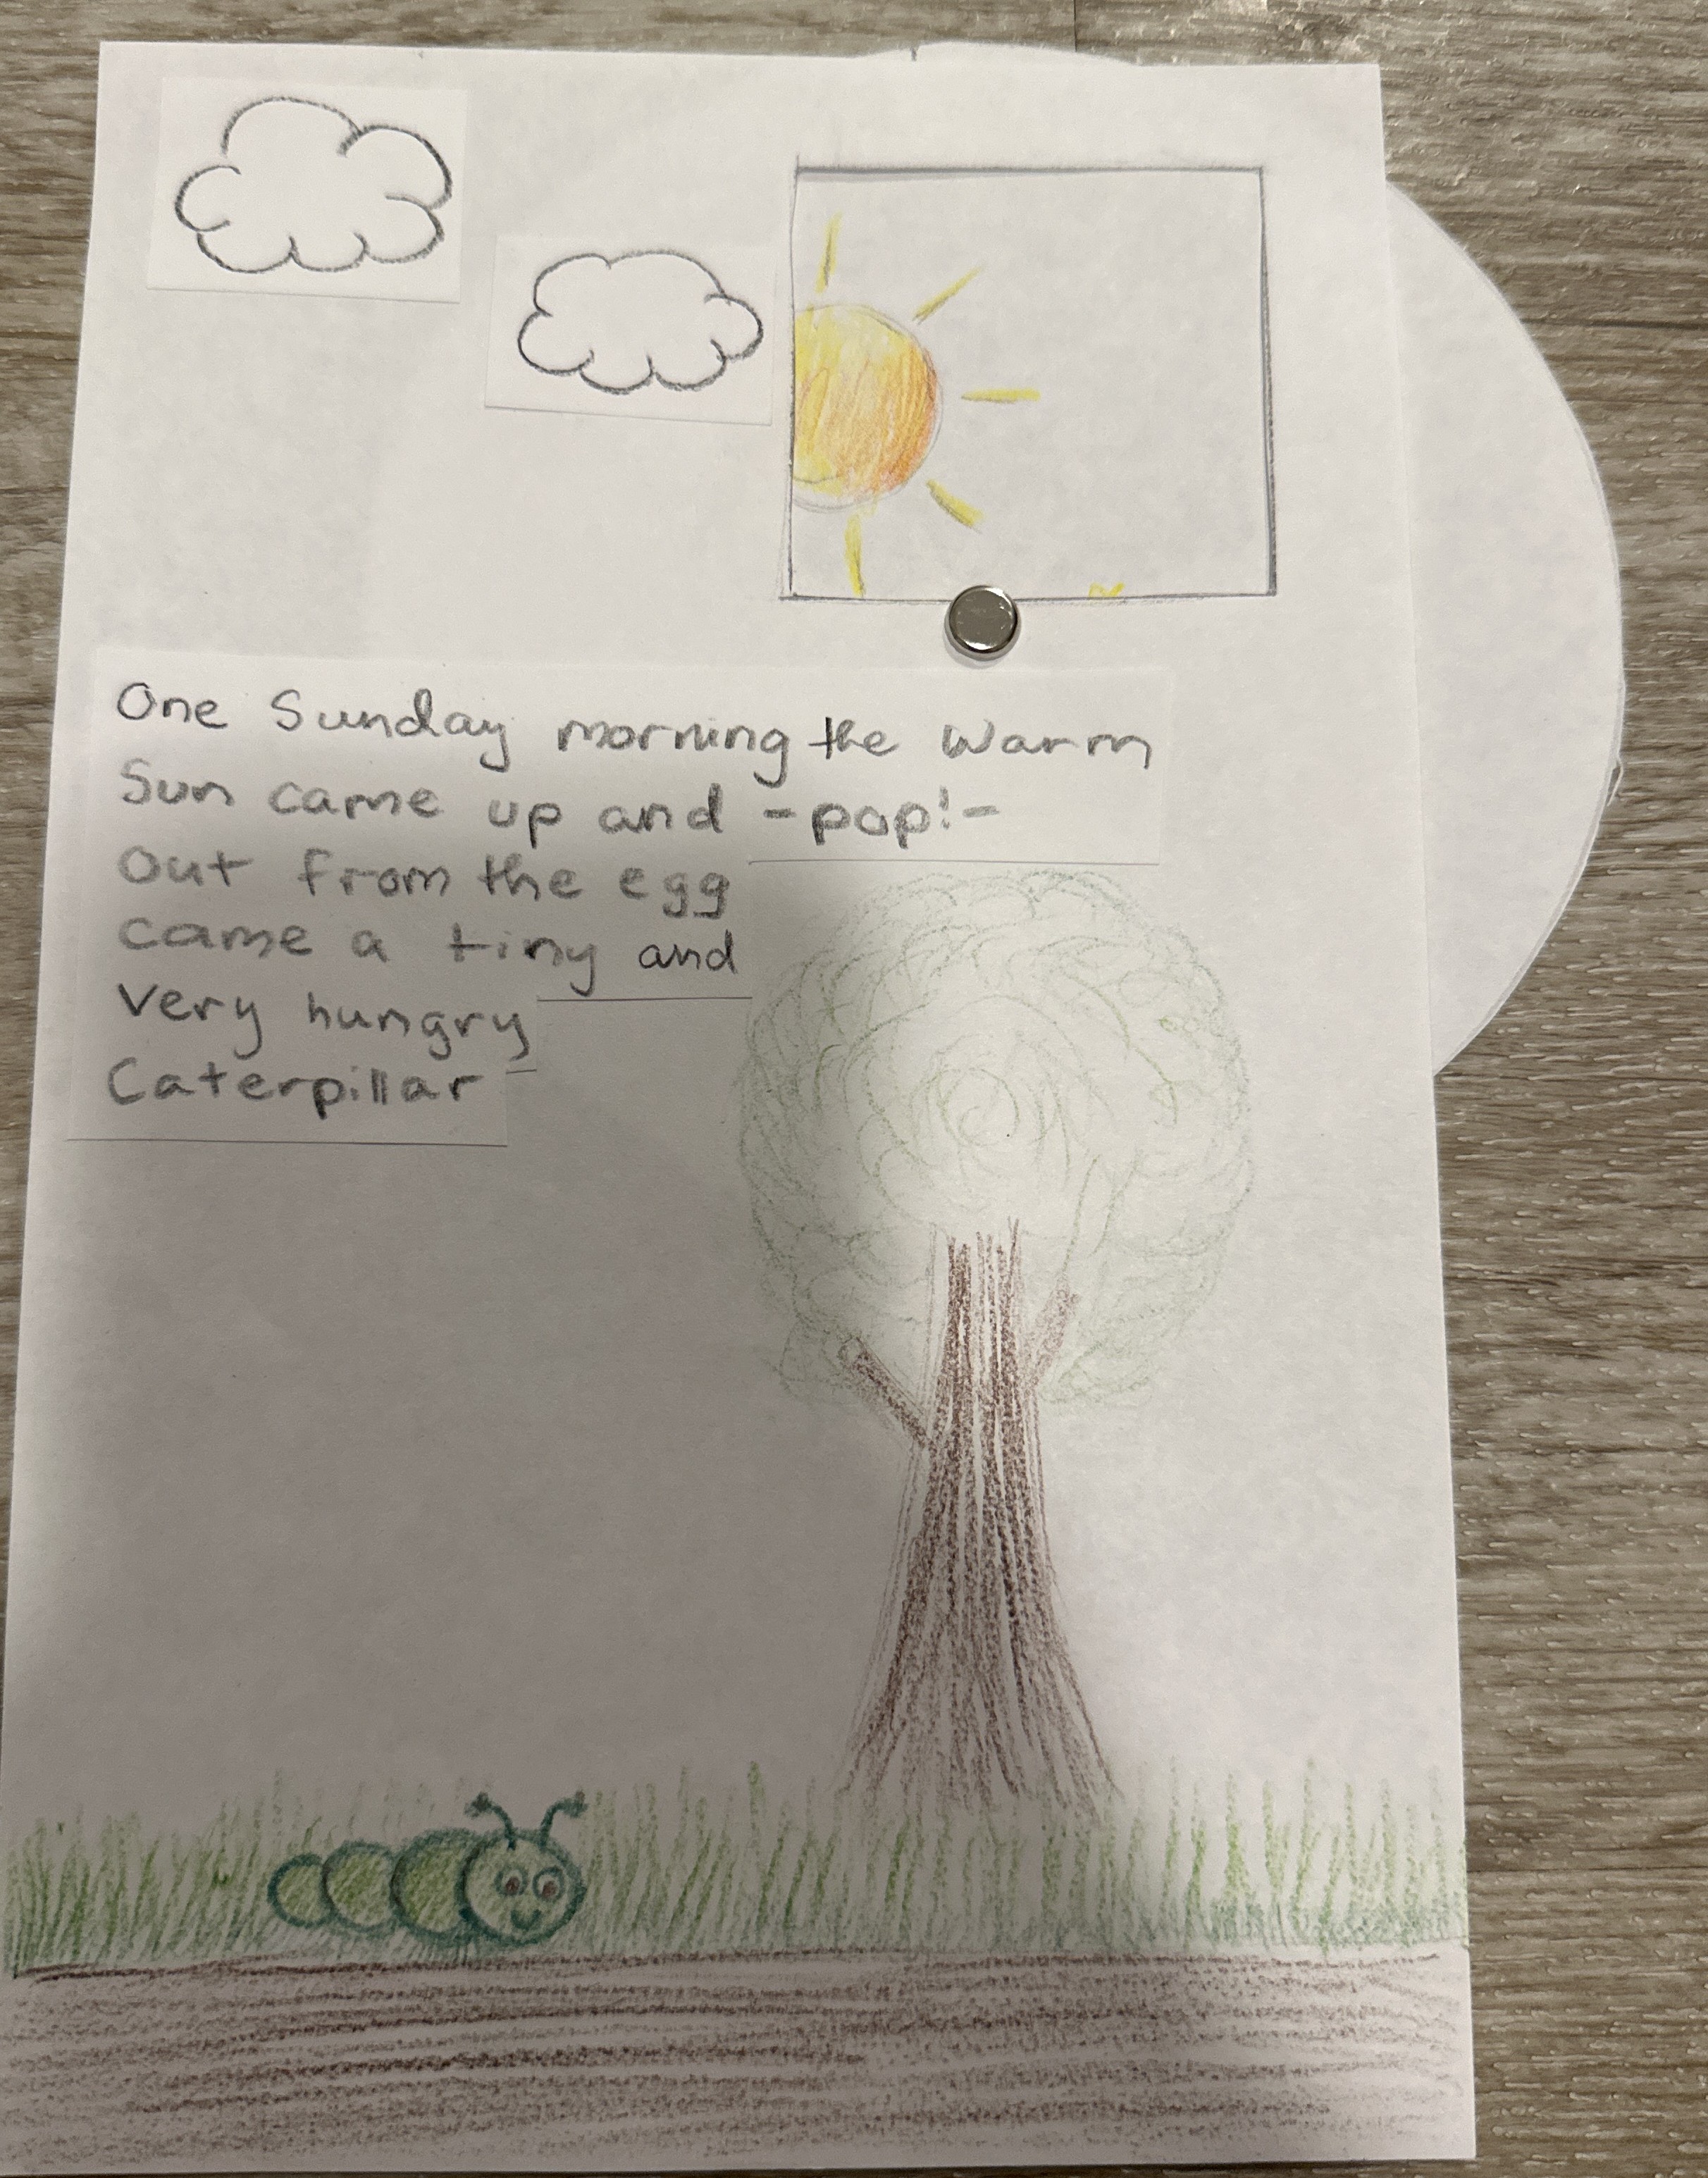 One Sunday morning the Warm
Sun came up and -pop!-
Out from the egg
came a tiny and
Very hungry
Caterpillar